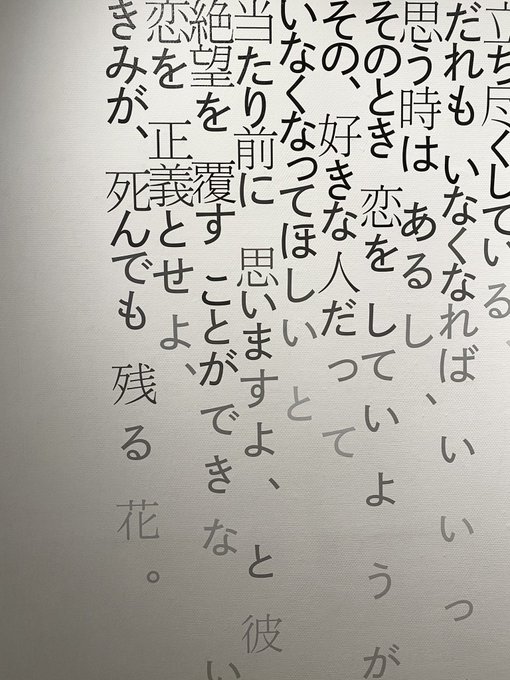 立ち尽くしている、
だれも いなくなれば、いいっ
思う時は あるし、
そのとき 恋を していようが
その、好きな人だって
いなくなってほしいと
当たり前に 思いますよ、と彼
絶望を 覆す ことができない
恋を 正義とせよ、
きみが、死んでも 残る 花。